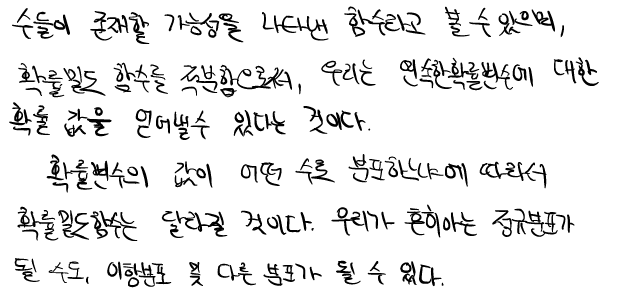 수들이 존재할 가능성을 나타낸 함수라고 볼 수 있으며,
확률밀도 함수를 적분함으로써, 우리는 연속한확률변수에 대한
확률 값을 얻어낼수 있다는 것이다.
확률변수의 값이 어떤 수로 분포하느냐에 따라서
확률밀도함수는 달라질 것이다. 우리가 흔히아는 정규분포가
될 수도, 이항분포 및 다른 분포가 될 수 있다.